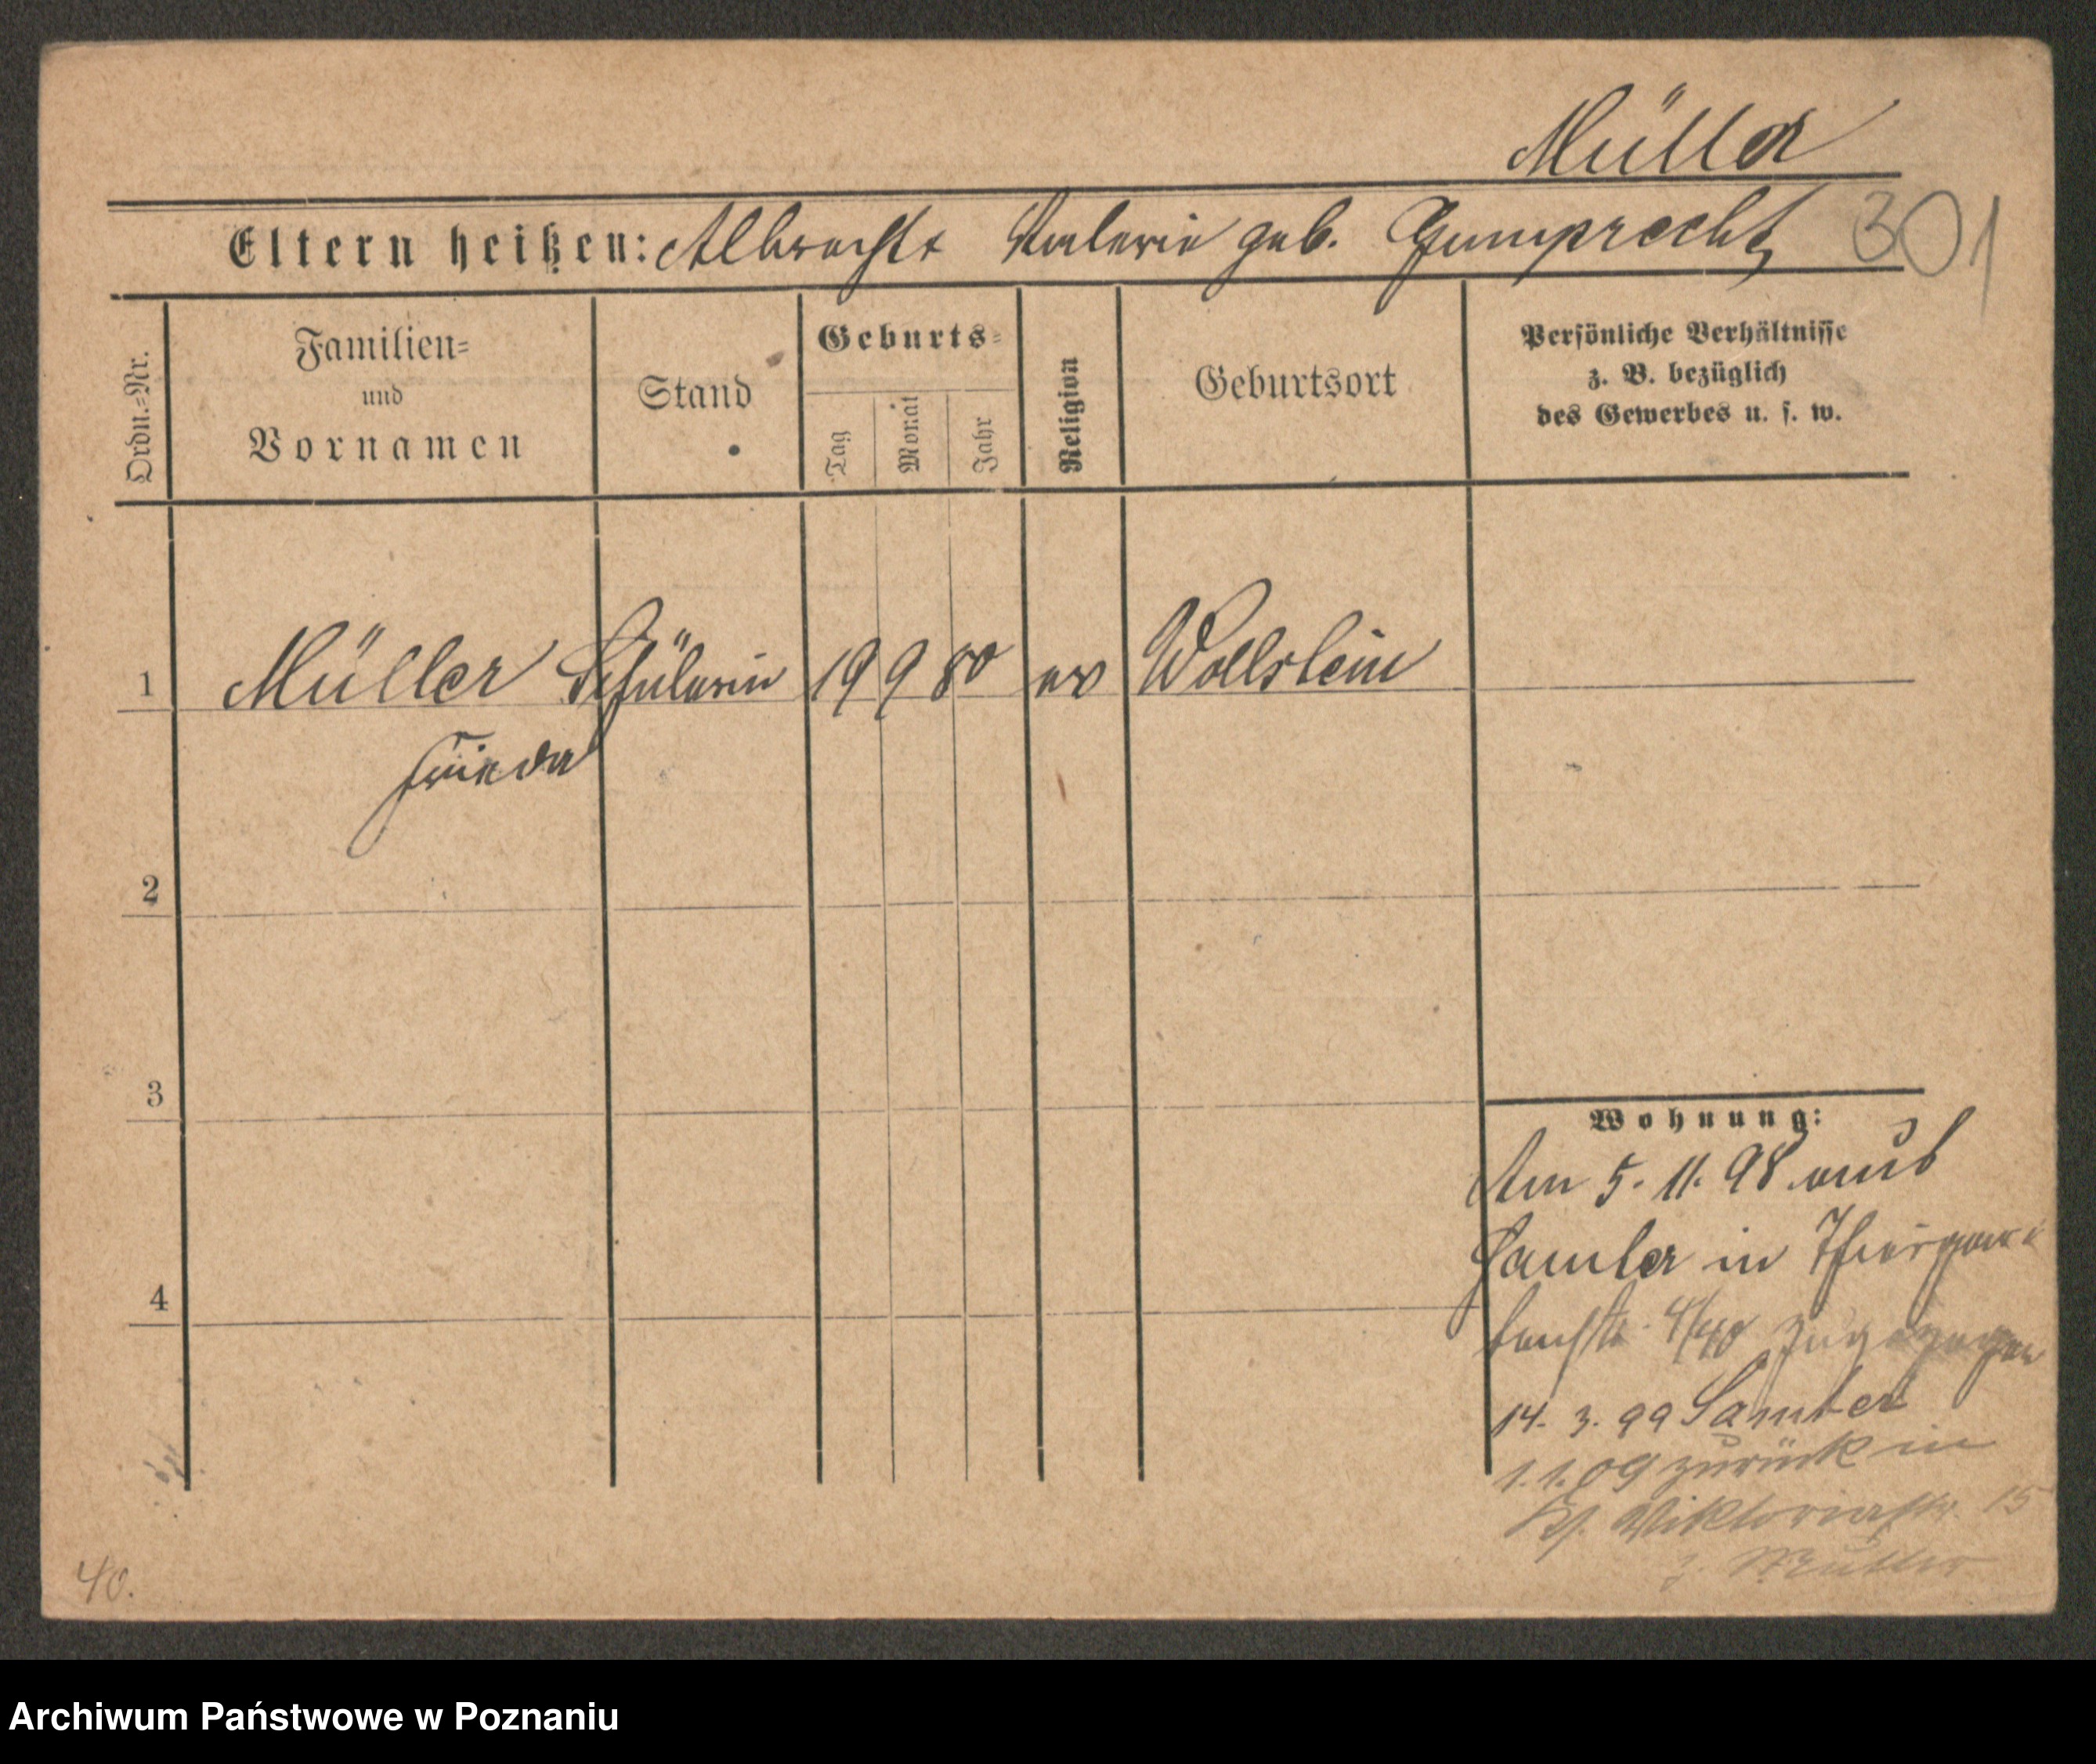 Müller
Eltern heißen: Albrecht Valerie geb. Gumprecht 301
Ordn.=Nr.
Familien=
und
Vornamen
Stand
Geburts=
Tag
Monat
Jahr
Religion
Geburtsort
Persönliche Verhältnisse
z. B. bezüglich
des Gewerbes u. s. w.
1 Müller Schülerin 19 9 80 ev Wollstein
Frieda
2
3
4
Wohnung:
Am 5. 11. 98 aus
Samter in Thiergar
tenstr. zugezogen
14. 3. 99 Samter
1. 1. 09 zurück in
Viktoriastr. 15
z. Mutter
40.
Archiwum Państwowe w Poznaniu